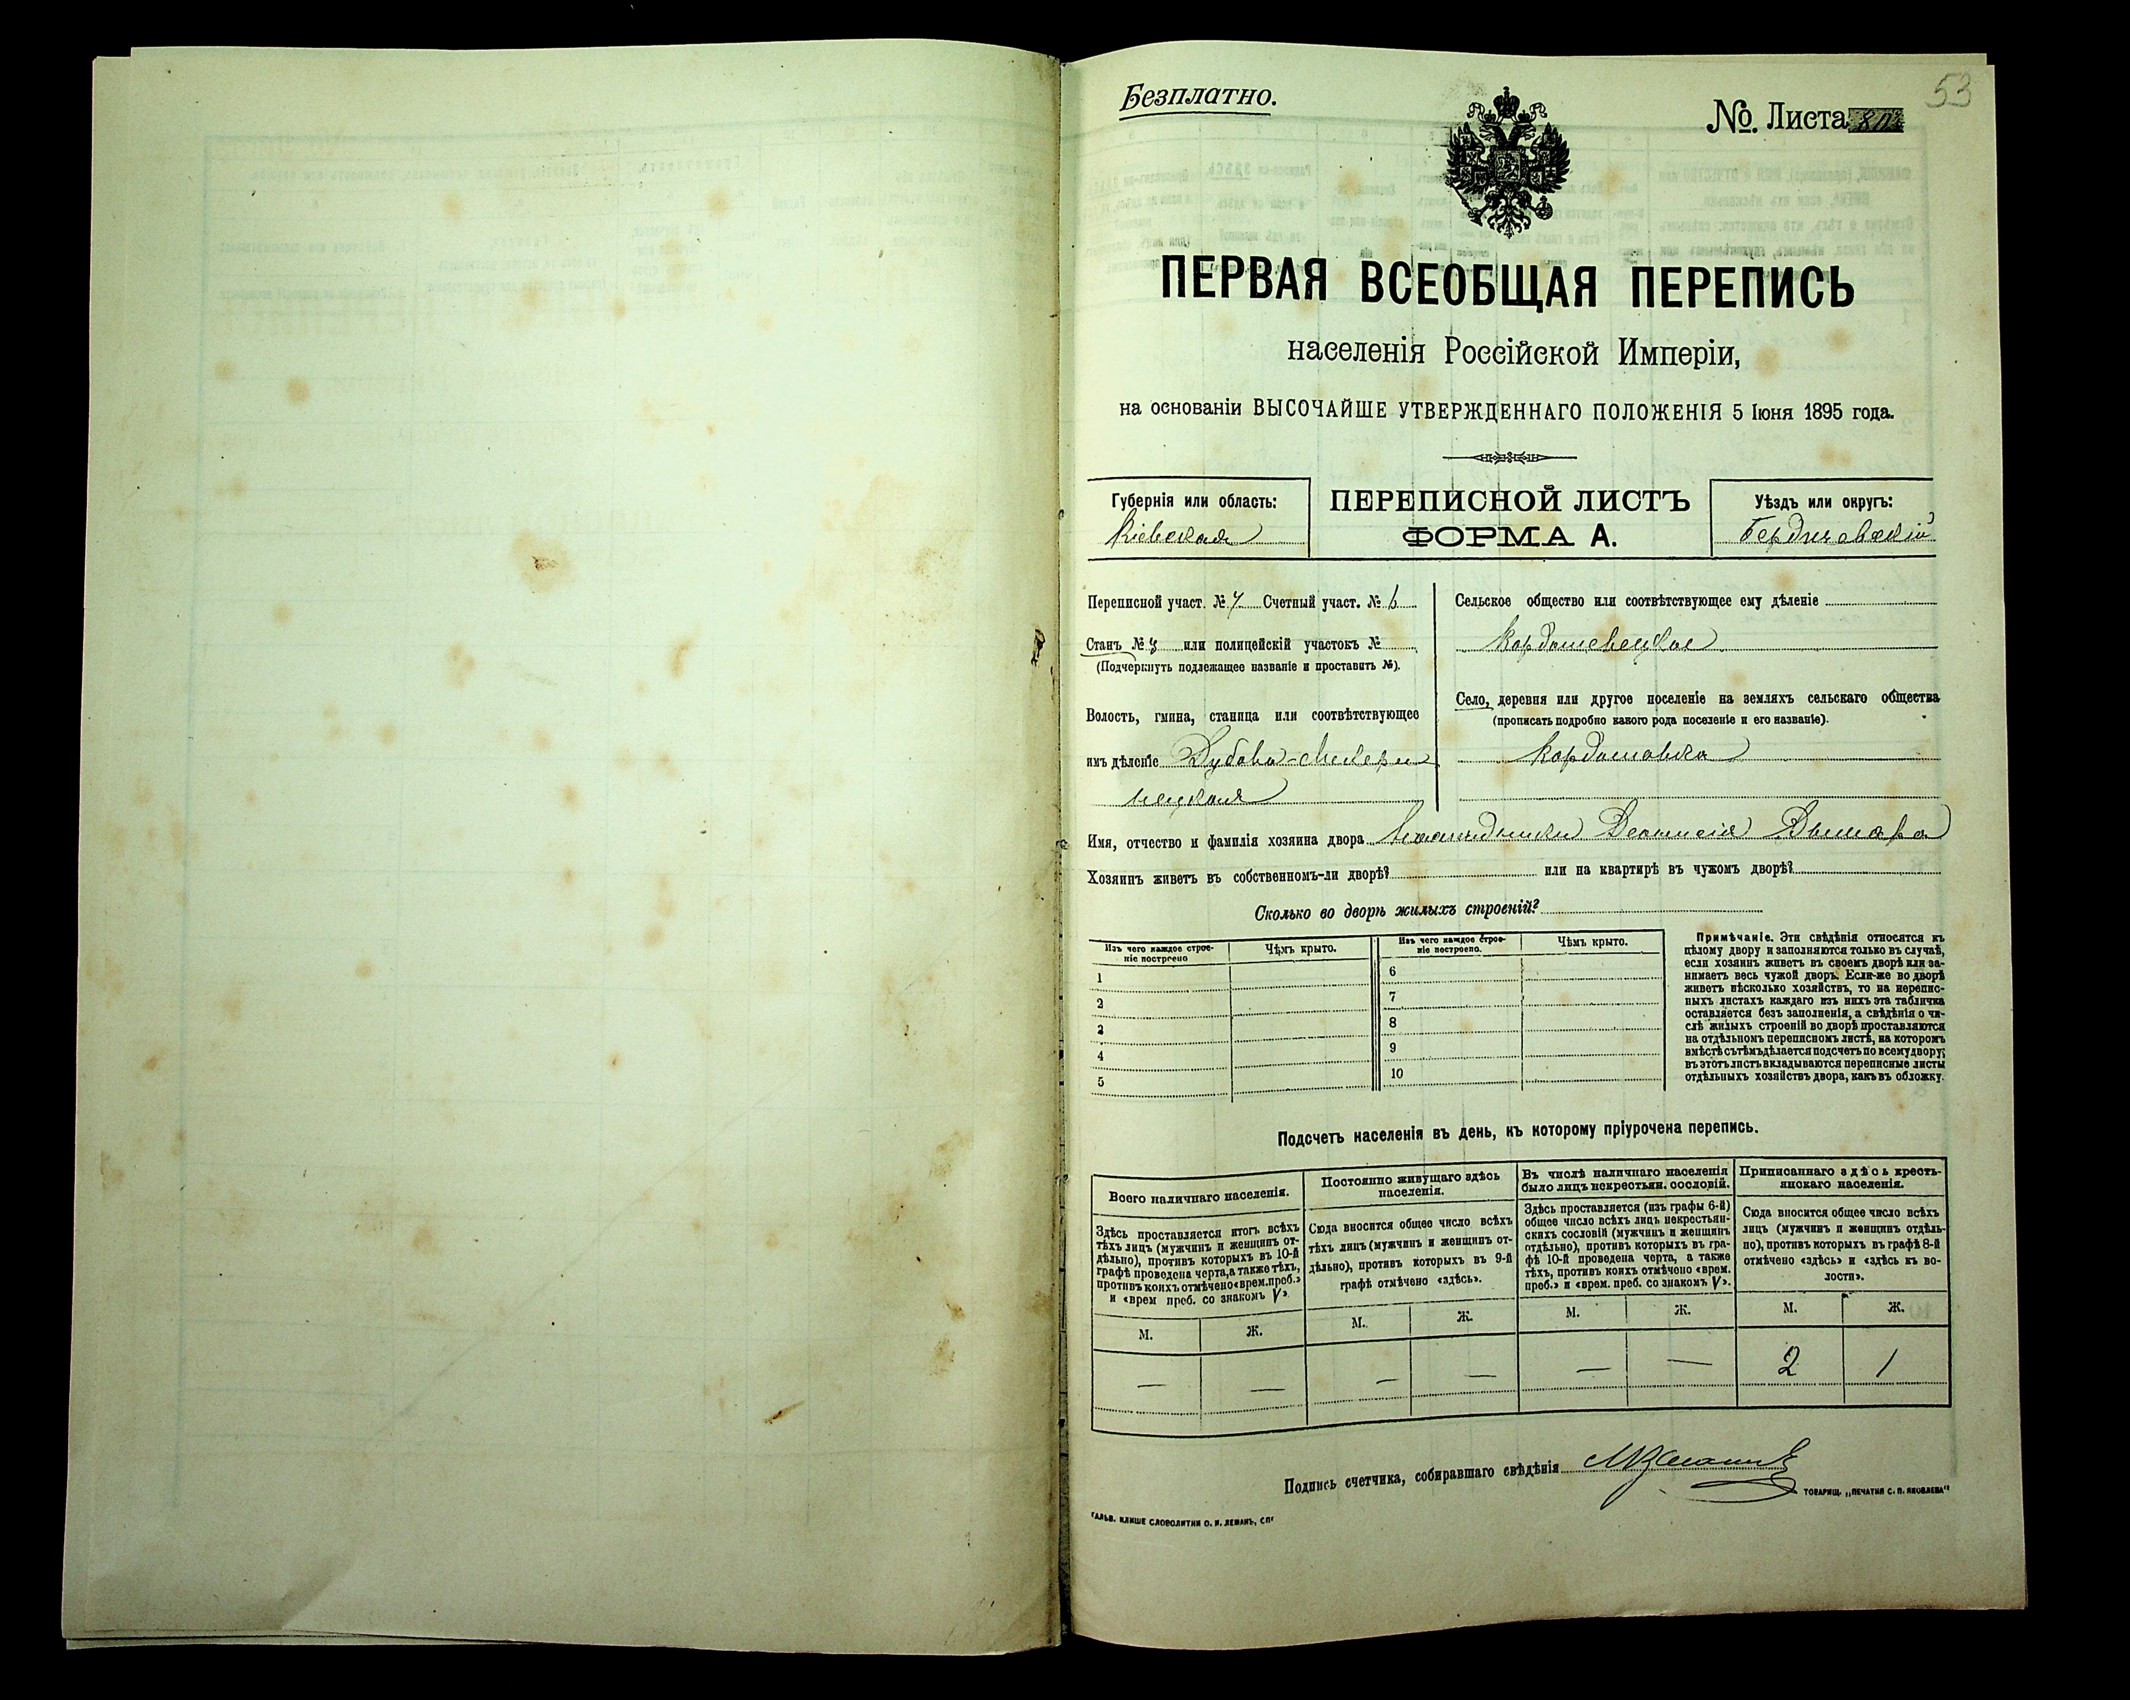 Безплатно.
53
№. Листа
ПЕРВАЯ ВСЕОБЩАЯ ПЕРЕПИСЬ
населенія Россійской Имперіи,
на основаніи ВЫСОЧАЙШЕ УТВЕРЖДЕННАГО ПОЛОЖЕНІЯ 5 Іюня 1895 года.
Губернія или область:
Кіевская
ПЕРЕПИСНОЙ ЛИСТЪ
ФОРМА А.
Уѣздъ или округъ:
Бердичевскій
Переписной участ. № 7 Счетный участ. № 6
Станъ № 3 или полицейскій участокъ №
(Подчеркнуть подлежащее названіе и проставить №).
Волость, гмина, станица или соотвѣтствующее
имъ дѣленіе
Сельское общество или соотвѣтствующее ему дѣленіе
Кордышевецкое
Село, деревня или другое поселеніе на земляхъ сельскаго общества
(прописать подробно какого рода поселеніе и его названіе).
Кордышовка
Имя, отчество и фамилія хозяина двора
Хозяинъ живетъ въ собственномъ-ли дворѣ? или на квартирѣ въ чужомъ дворѣ?
Сколько во дворѣ жилыхъ строеній?
Изъ чего каждое строе-
ніе построено
Чѣмъ крыто.
1
2
3
4
5
Изъ чего каждое строе-
ніе построено.
Чѣмъ крыто.
6
7
8
9
10
Примѣчаніе. Эти свѣдѣнія относятся къ
цѣлому двору и заполняются только въ случаѣ,
если хозяинъ живетъ въ своемъ дворѣ или за-
нимаетъ весь чужой дворъ. Если-же во дворѣ
живетъ нѣсколько хозяйствъ, то на перепис-
ныхъ листахъ каждаго изъ нихъ эта табличка
оставляется безъ заполненія, а свѣдѣнія о чи-
слѣ жилыхъ строеній во дворѣ проставляются
на отдѣльномъ переписномъ листѣ, на которомъ
вмѣстѣ съ тѣмъ дѣлается подсчетъ по всему двору;
въ этотъ листъ вкладываются переписные листы
отдѣльныхъ хозяйствъ двора, какъ въ обложку.
Подсчетъ населенія въ день, къ которому пріурочена перепись.
Всего наличнаго населенія.
Здѣсь проставляется итогъ всѣхъ
тѣхъ лицъ (мужчинъ и женщинъ от-
дѣльно), противъ которыхъ въ 10-й
графѣ проведена черта, а также тѣхъ,
противъ коихъ отмѣчено «врем. преб.»
и «врем преб. со знакомъ V»
М. Ж.
— —
Постоянно живущаго здѣсь
населенія.
Сюда вносится общее число всѣхъ
тѣхъ лицъ (мужчинъ и женщинъ от-
дѣльно), противъ которыхъ въ 9-й
графѣ отмѣчено «здѣсь».
М. Ж.
— —
Въ числѣ наличнаго населенія
было лицъ некрестьян. сословій.
Здѣсь проставляется (изъ графы 6-й)
общее число всѣхъ лицъ некрестьян-
скихъ сословій (мужчинъ и женщинъ
отдѣльно), противъ которыхъ въ гра-
фѣ 10-й проведена черта, а также
тѣхъ, противъ коихъ отмѣчено «врем.
преб.» и «врем. преб. со знакомъ V».
М. Ж.
— —
Приписаннаго здѣсь кресть-
янскаго населенія.
Сюда вносится общее число всѣхъ
лицъ (мужчинъ и женщинъ отдѣль-
но), противъ которыхъ въ графѣ 8-й
отмѣчено «здѣсь» и «здѣсь къ во-
лости».
М. Ж.
2 1
Подпись счетчика, собиравшаго свѣдѣнія
ТОВАРИЩ. „ПЕЧАТНЯ С. П. ЯКОВЛЕВА"
ГАЛЬВ. КЛИШЕ СЛОВОЛИТНИ О. И. ЛЕМАНЪ, СПГ